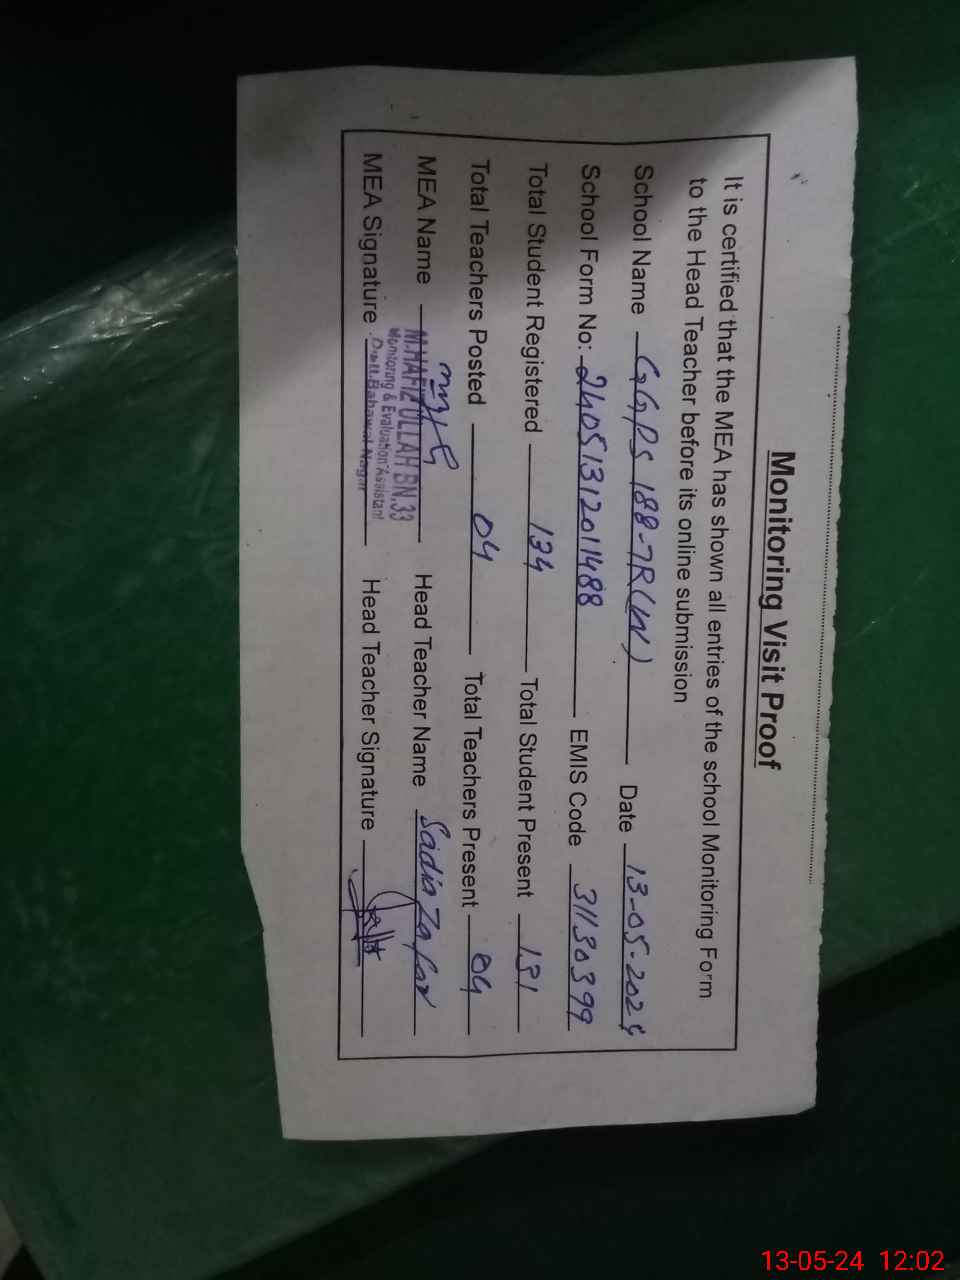 Monitoring Visit Proof
It is certified that the MEA has shown all entries of the school Monitoring Form
to the Head Teacher before its online submission
School Name GGPS 188-7R(W) Date 13-05-2024
School Form No: 24051312011488 EMIS Code 31130399
Total Student Registered 134 Total Student Present 131
Total Teachers Posted 04 Total Teachers Present 04
MEA Name M.HAFIZ ULLAH BN.33 Head Teacher Name Sadia Zafar
Monitoring & Evaluation Assistant
MEA Signature Distt.Bahawal Nagar Head Teacher Signature
13-05-24 12:02